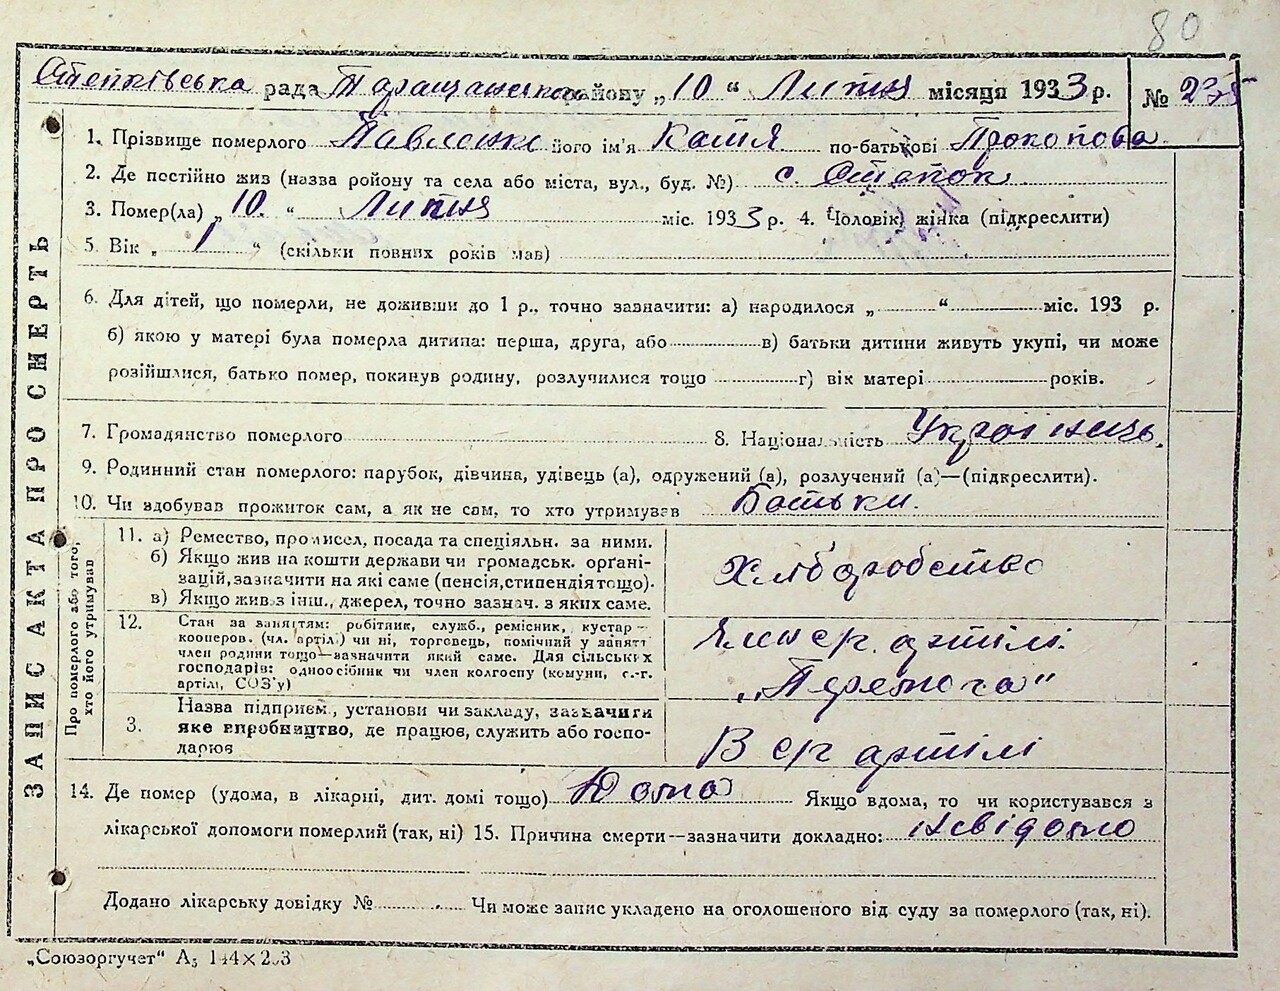 80
Степківська рада Таращанськ району „10“ Липня місяця 1933 р. № 235
1. Прізвище померлого Павленко його ім'я Катя по-батькові Прокопова
2. Де постійно жив (назва ройону та села або міста, вул., буд. №) с. Степок
3. Помер(ла) „10.“ Липня міс. 1933 р. 4. Чоловік, жінка (підкреслити)
5. Вік „ 1 “ (скільки повних років мав)
6. Для дітей, що померли, не доживши до 1 р., точно зазначити: а) народилося „ “ міс. 193 р.
б) якою у матері була померла дитина: перша, друга, або в) батьки дитини живуть укупі, чи може
розійшлися, батько помер, покинув родину, розлучилися тощо г) вік матері років.
7. Громадянство померлого 8. Національність Українець.
9. Родинний стан померлого: парубок, дівчина, удівець (а), одружений (а), розлучений (а)—(підкреслити).
10. Чи здобував прожиток сам, а як не сам, то хто утримував Батьки.
ЗАПИС АКТА ПРО СМЕРТЬ
Про померлого або того,
хто його утримував
11. а) Ремество, промисел, посада та спеціяльн. за ними.
б) Якщо жив на кошти держави чи громадськ. орґані-
зацій, зазначити на які саме (пенсія, стипендія тощо).
в) Якщо жив з інш., джерел, точно зазнач. з яких саме.
Хлібробство
12. Стан за заняттям: робітник, служб., ремісник, кустар—
кооперов. (чл. артіл.) чи ні, торговець, помічний у занятт
член родини тощо—зазначити який саме. Для сільських
господарів: одноосібник чи член колгоспу (комуни, с.-г.
артілі, СОЗ'у)
Член с/г. артілі.
„Перемога“
3. Назва підприєм., установи чи закладу, зазначити
яке виробництво, де працює, служить або госпо-
дарює
В с/г артілі
14. Де помер (удома, в лікарні, дит. домі тощо) Дома Якщо вдома, то чи користувався з
лікарської допомоги померлий (так, ні) 15. Причина смерти—зазначити докладно: невідомо
Додано лікарську довідку № Чи може запис укладено на оголошеного від суду за померлого (так, ні).
„Союзоргучет“ А5 144×203